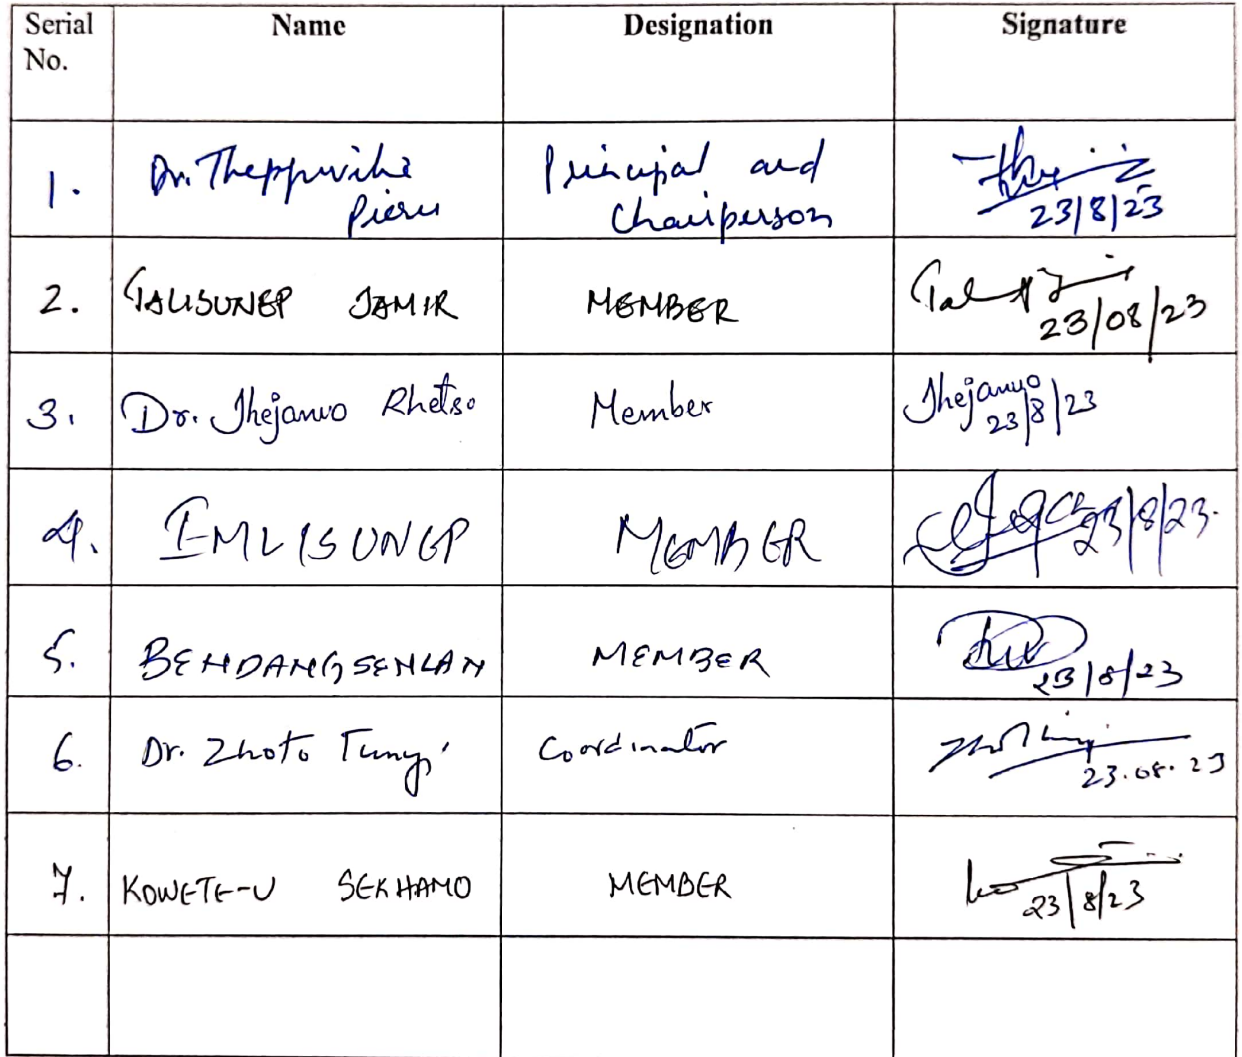 Serial No. Name Designation Signature
1. Dr. Theppuvilie Pieru Principal and Chairperson 23/8/23
2. TALISUNEP JAMIR MEMBER 23/08/23
3. Dr. Jhejanuo Rhetso Member Jhejanuo 23/8/23
4. IMLISUNEP MEMBER 23/8/23.
5. BENDANGSENLAN MEMBER 23/8/23
6. Dr. Zhoto Tunyi Coordinator 23.08.23
7. KOWETE-U SEKHAMO MEMBER 23/8/23